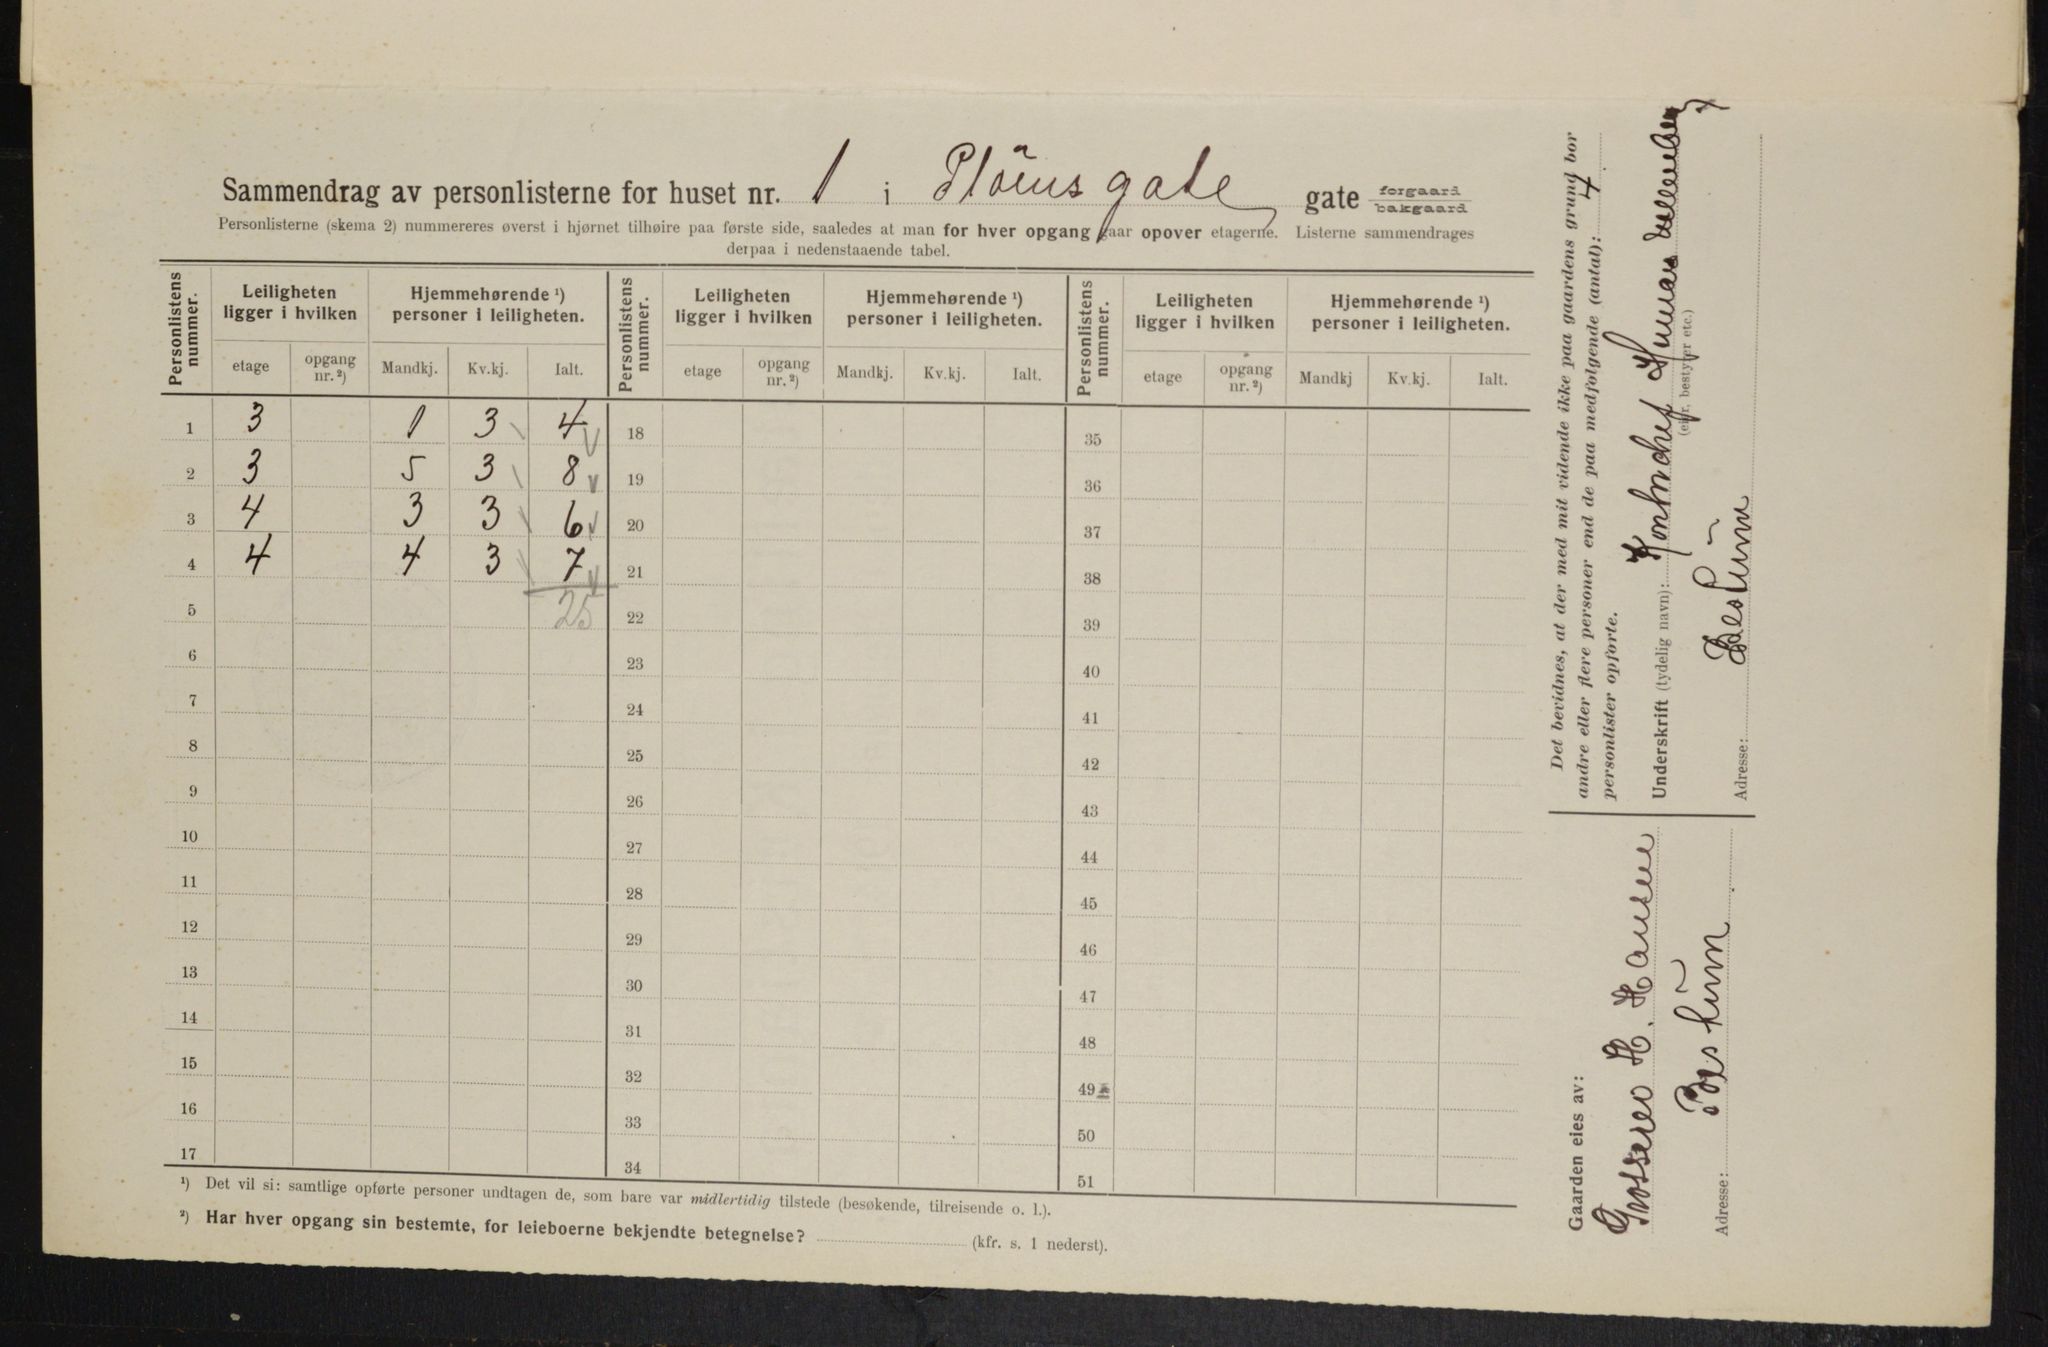 Sammendrag av personlisterne for huset nr. 1 i Plöensgate gate forgaard bakgaard
Personlisterne (skema 2) nummereres øverst i hjørnet tilhøire paa første side, saaledes at man for hver opgang gaar opover etagerne. Listerne sammendrages
derpaa i nedenstaaende tabel.
Personlistens nummer. Leiligheten ligger i hvilken Hjemmehørende ¹) personer i leiligheten. Personlistens nummer. Leiligheten ligger i hvilken Hjemmehørende ¹) personer i leiligheten. Personlistens nummer. Leiligheten ligger i hvilken Hjemmehørende ¹) personer i leiligheten.
etage opgang nr. ²) Mandkj. Kv.kj. Ialt. etage opgang nr. ²) Mandkj. Kv.kj. Ialt. etage opgang nr. ²) Mandkj Kv.kj. Ialt.
1 3 1 3 4 18 35
2 3 5 3 8 19 36
3 4 3 3 6 20 37
4 4 4 3 7 21 38
5 25 22 39
6 23 40
7 24 41
8 25 42
9 26 43
10 27 44
11 28 45
12 29 46
13 30 47
14 31 48
15 32 49
16 33 50
17 34 51
¹) Det vil si: samtlige opførte personer undtagen de, som bare var midlertidig tilstede (besøkende, tilreisende o. l.).
²) Har hver opgang sin bestemte, for leieboerne bekjendte betegnelse? (kfr. s. 1 nederst).
Det bevidnes, at der med mit vidende ikke paa gaardens grund bor
andre eller flere personer end de paa medfølgende (antal): 4
personlister opførte.
Underskrift (tydelig navn):
(eier, bestyrer etc.)
Adresse: Bes hum
Gaarden eies av:
Grosserer H. Hansen
Adresse: Bes hum